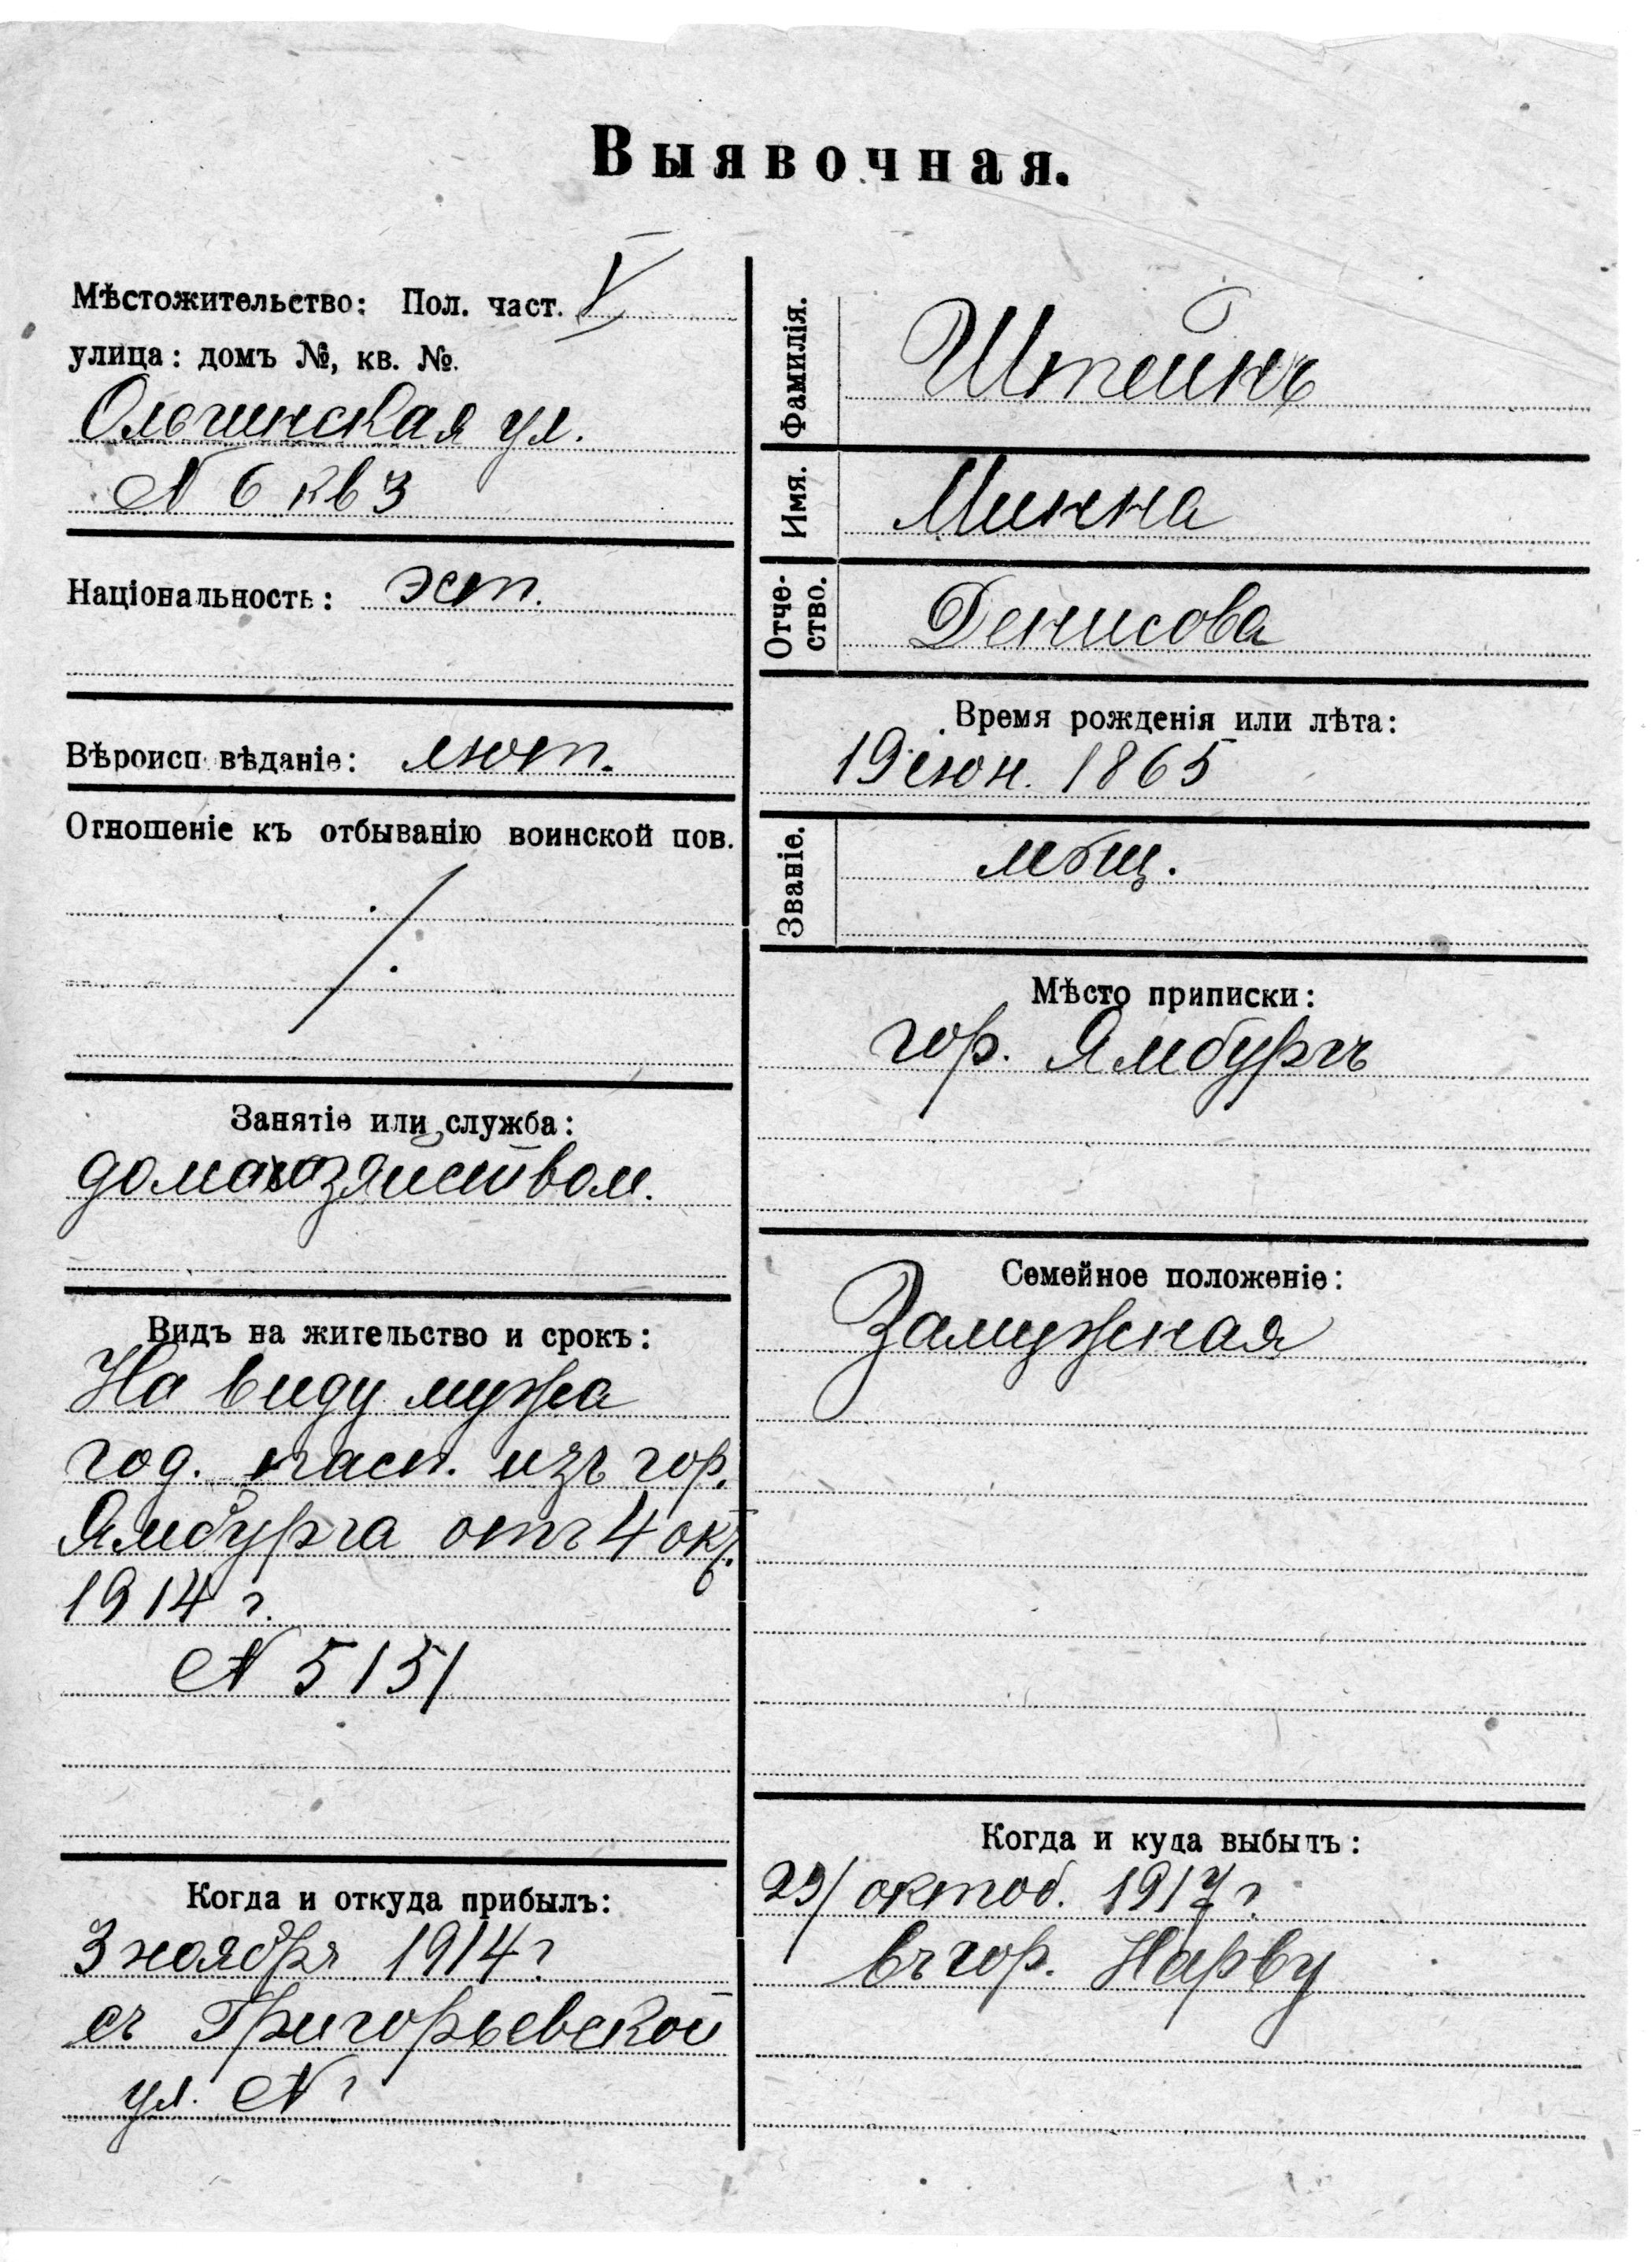 Выявочная.
Мѣстожительство: Пол. част. V
улица: домъ №, кв. №.
Ольгинская ул.
N 6 кв 3
Національность: эст.
Вѣроисповѣданіе: лют.
Отношеніе къ отбыванію воинской пов.
Занятіе или служба:
домохозяйством.
Видъ на жительство и срокъ:
На виду мужа
год. пасп. изъ гор.
Ямбурга отъ 4 окт.
1914 г.
N 5151
Когда и откуда прибылъ:
3 ноября 1914 г
съ Григорьевской
ул. N
Фамилія.
Штейнъ
Имя.
Минна
Отче-
ство.
Денисова
Время рожденія или лѣта:
19 июн. 1865
Званіе.
мѣщ.
Мѣсто приписки:
гор. Ямбургъ
Семейное положеніе:
Замужная
Когда и куда выбылъ:
октоб. 1917 г.
въ гор. Нарву